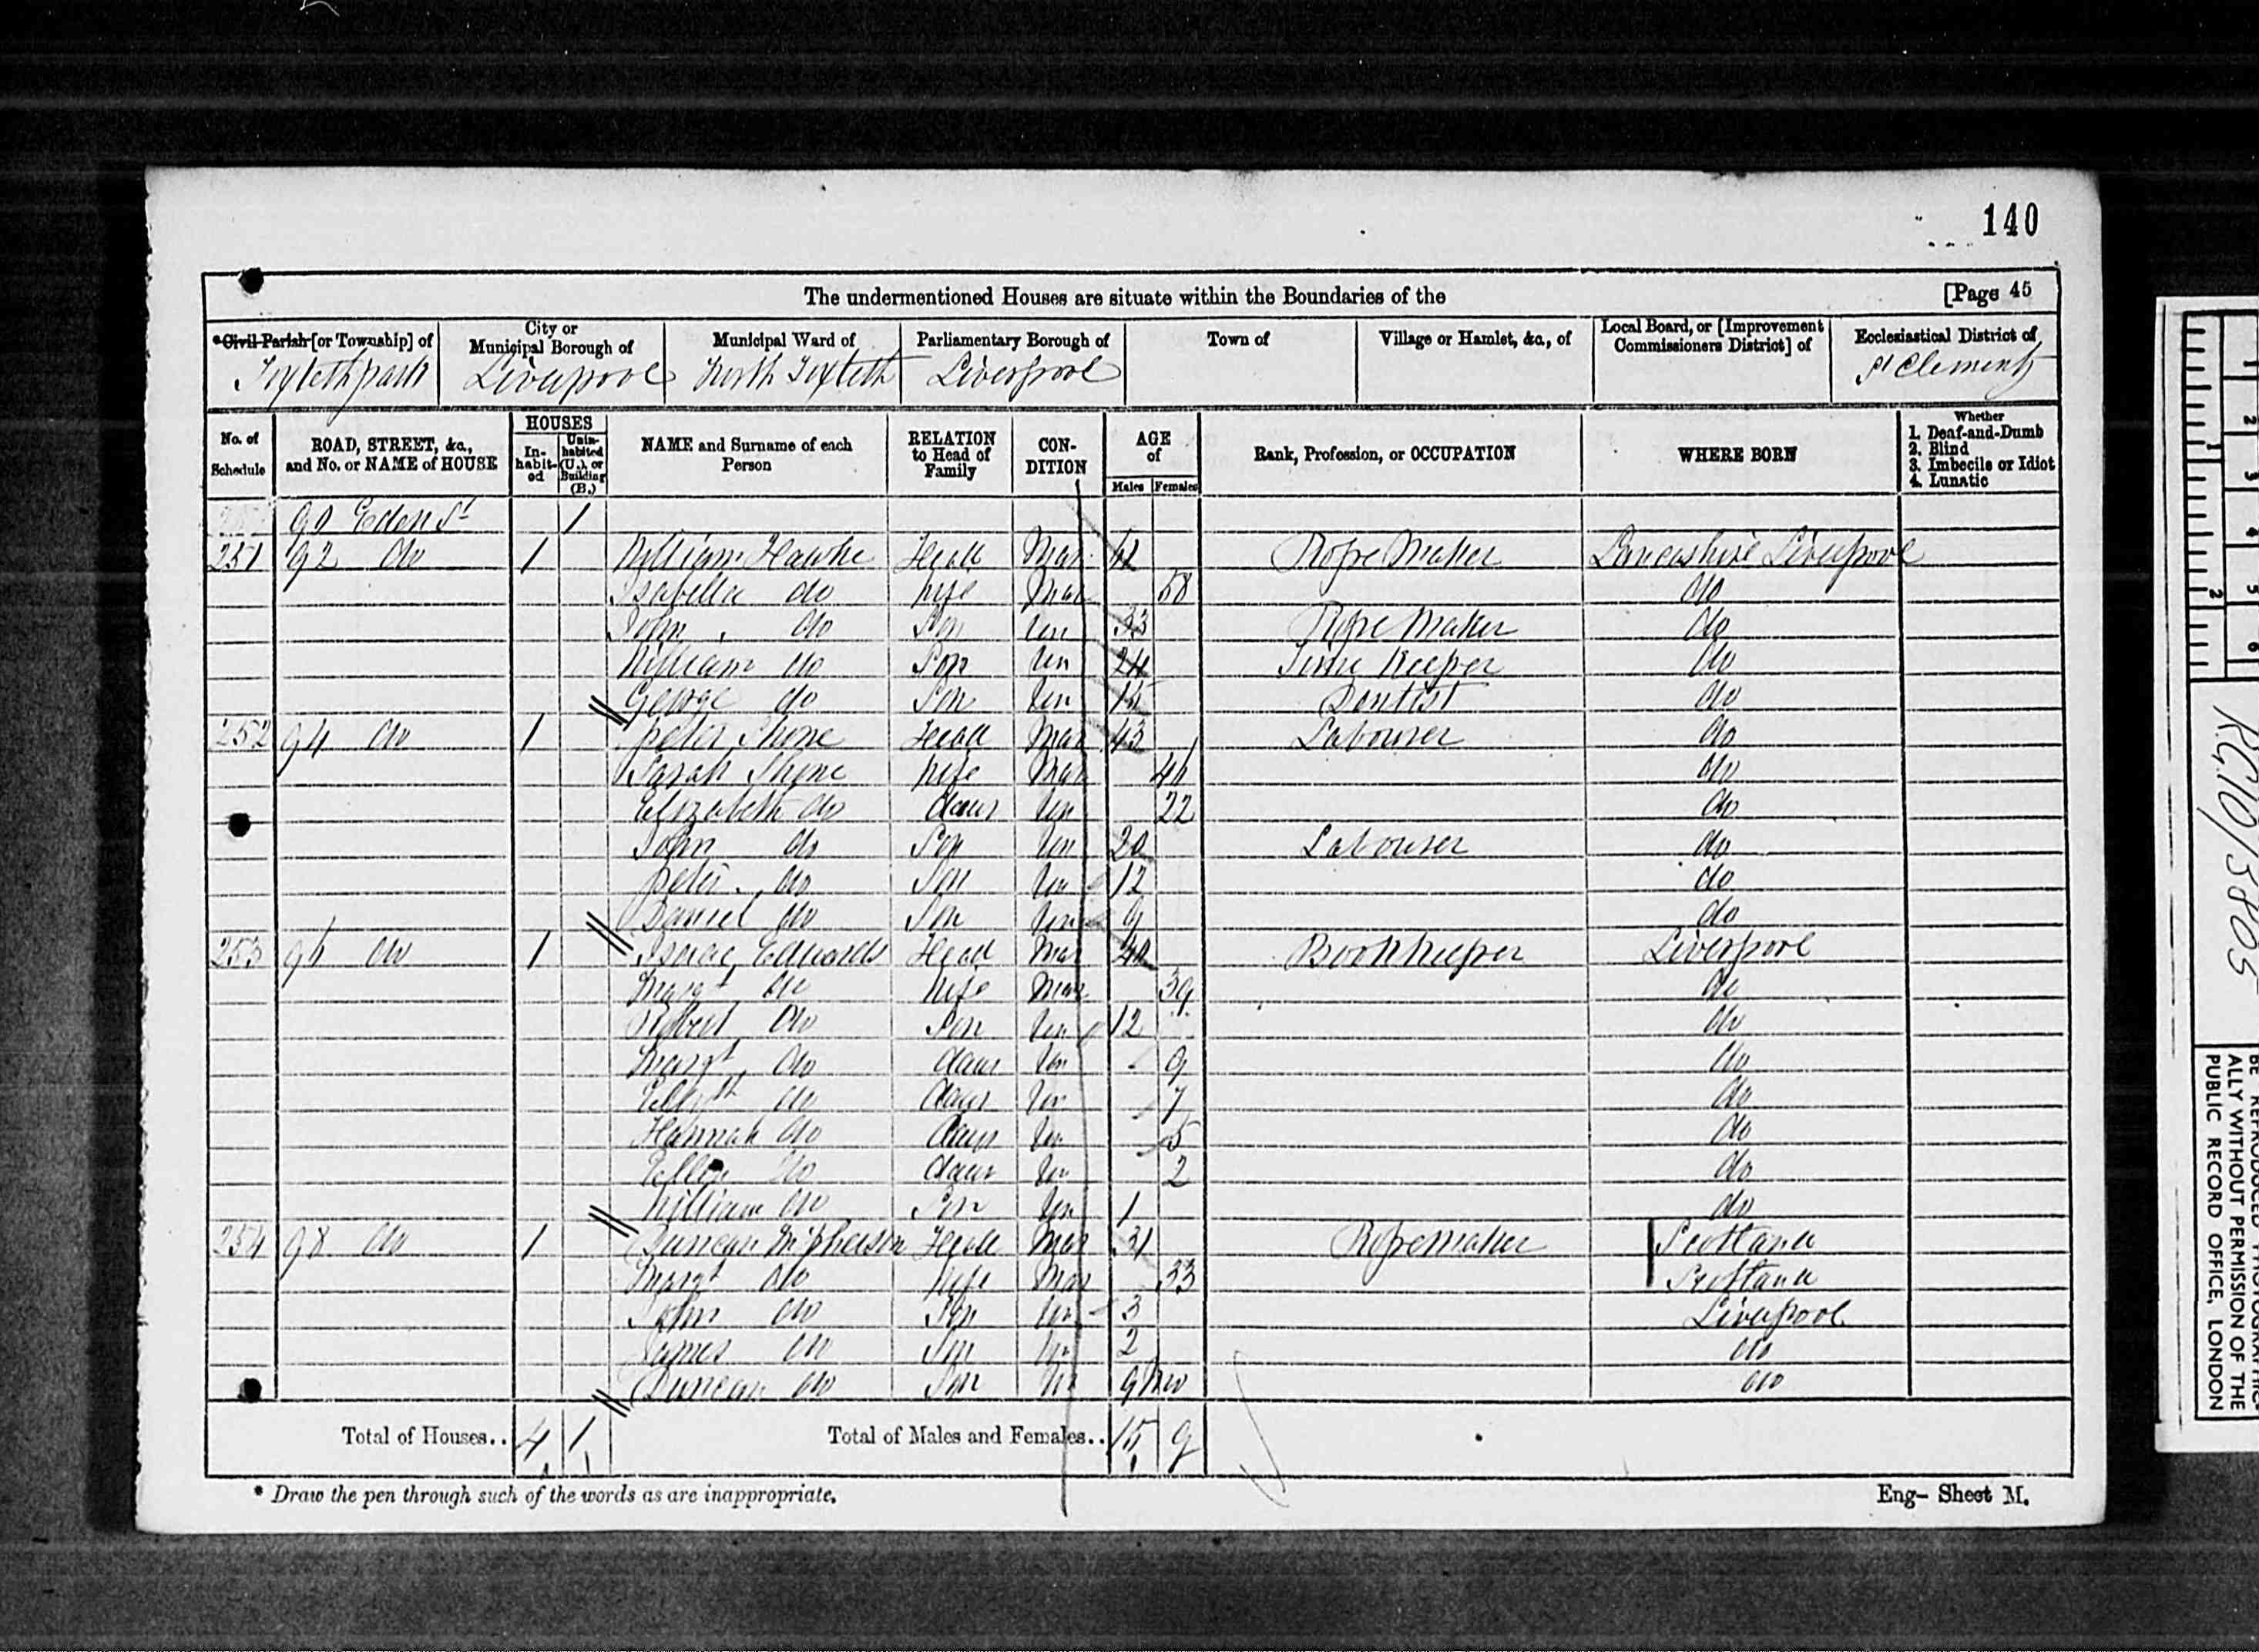 140
The undermentioned Houses are situate within the Boundaries of the [Page 45
*Civil Parish [or Township] of City or Municipal Borough of Municipal Ward of Parliamentary Borough of Town of Village or Hamlet, &c., of Local Board, or [Improvement Commissioners District] of Ecclesiastical District of
Toxteth park Liverpool North Toxteth Liverpool St Clements
No. of Schedule ROAD, STREET, &c., and No. or NAME of HOUSE HOUSES In-habit-ed Unin-habited (U.), or Building (B.) NAME and Surname of each Person RELATION to Head of Family CON-DITION AGE of Males Females Rank, Profession, or OCCUPATION WHERE BORN Whether 1. Deaf-and-Dumb 2. Blind 3. Imbecile or Idiot 4. Lunatic
90 Eden St 1
251 92 do 1 William Hawke Head Mar Rope Maker Lancashire Liverpool
Isabella do wife Mar 58 do
John do Son Un 33 Rope Maker do
William do Son Un 24 Time Keeper do
George do Son Un 15 Dentist do
252 94 do 1 Peter Shone Head Mar 43 Labourer do
Sarah Shone wife Mar 46 do
Elizabeth do daur Un 22 do
John do Son Un 20 Labourer do
Peter do Son Un 12 do
Daniel do Son Un 9 do
253 96 do 1 Isaac Edwards Head Mar 40 Bookkeeper Liverpool
Margt do wife Mar 39 do
Robert do Son Un 12 do
Margt do daur Un 9 do
Elizth do daur Un 7 do
Hannah do daur Un 5 do
Ellen do daur Un 2 do
William do Son Un 1 do
254 98 do 1 Duncan McPherson Head Mar 31 Ropemaker Scotland
Margt do wife Mar 33 Scotland
John do Son Un 3 Liverpool
James do Son Un 2 do
Duncan do Son Un 9 mo do
Total of Houses.. 4 1 Total of Males and Females.. 15 9
* Draw the pen through such of the words as are inappropriate.
Eng- Sheet M.
R.G.10/3805
ALLY WITHOUT PERMISSION OF THE
PUBLIC RECORD OFFICE, LONDON